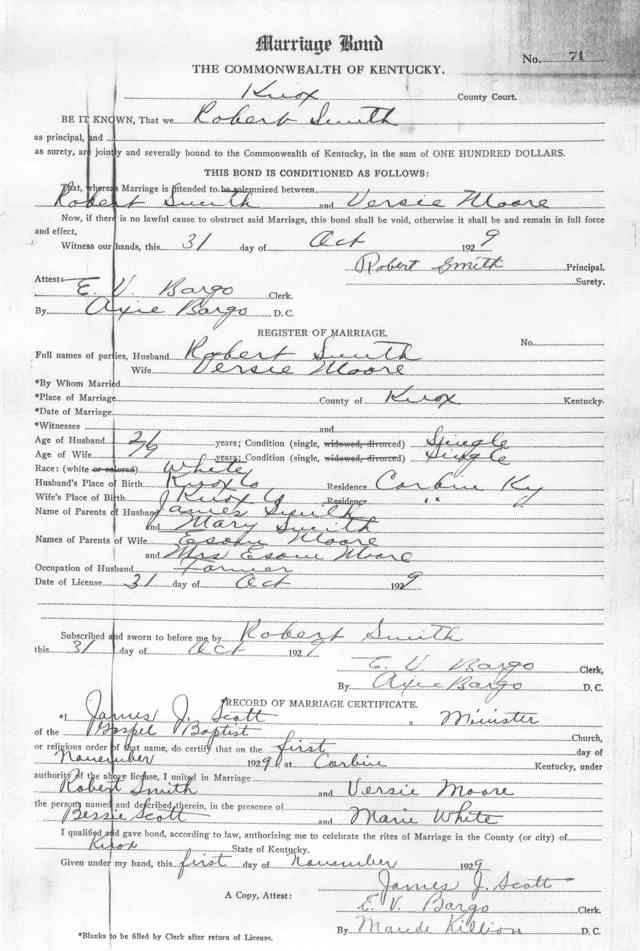 Marriage Bond
No. 71
THE COMMONWEALTH OF KENTUCKY.
Knox County Court.
BE IT KNOWN, That we Robert Smith
as principal, and
as surety, are jointly and severally bound to the Commonwealth of Kentucky, in the sum of ONE HUNDRED DOLLARS.
THIS BOND IS CONDITIONED AS FOLLOWS:
That, whereas Marriage is intended to be solemnized between
Robert Smith and Versie Moore
Now, if there is no lawful cause to obstruct said Marriage, this bond shall be void, otherwise it shall be and remain in full force
and effect,
Witness our hands, this 31 day of Oct 1929
Robert Smith Principal.
Surety.
Attest: E. V. Bargo Clerk.
By Axie Bargo D. C.
REGISTER OF MARRIAGE.
No.
Full names of parties, Husband Robert Smith
Wife Versie Moore
*By Whom Married
*Place of Marriage County of Knox Kentucky.
*Date of Marriage
*Witnesses and
Age of Husband 21 years; Condition (single, widowed, divorced) Single
Age of Wife years; Condition (single, widowed, divorced) Single
Race: (white or colored) White
Husband's Place of Birth Knox Co Residence Corbin Ky
Wife's Place of Birth Knox Co Residence " "
Name of Parents of Husband James Smith
and Mary Smith
Names of Parents of Wife Esom Moore
and Mrs Esom Moore
Occupation of Husband Farmer
Date of License 31 day of Oct 1929
Subscribed and sworn to before me by Robert Smith
this 31 day of Oct 1929
E. V. Bargo Clerk,
By Axie Bargo D. C.
RECORD OF MARRIAGE CERTIFICATE.
*I James J. Scott a Minister
of the Gospel Baptist Church,
or religious order of that name, do certify that on the first day of
November 1929 at Corbin Kentucky, under
authority of the above license, I united in Marriage
Robert Smith and Versie Moore
the persons named and described therein, in the presence of
Bessie Scott and Marie White
I qualified and gave bond, according to law, authorizing me to celebrate the rites of Marriage in the County (or city) of
Knox State of Kentucky.
Given under my hand, this first day of November 1929
James J. Scott
A Copy, Attest: E. V. Bargo Clerk.
By Maude Killion D. C.
*Blanks to be filled by Clerk after return of License.